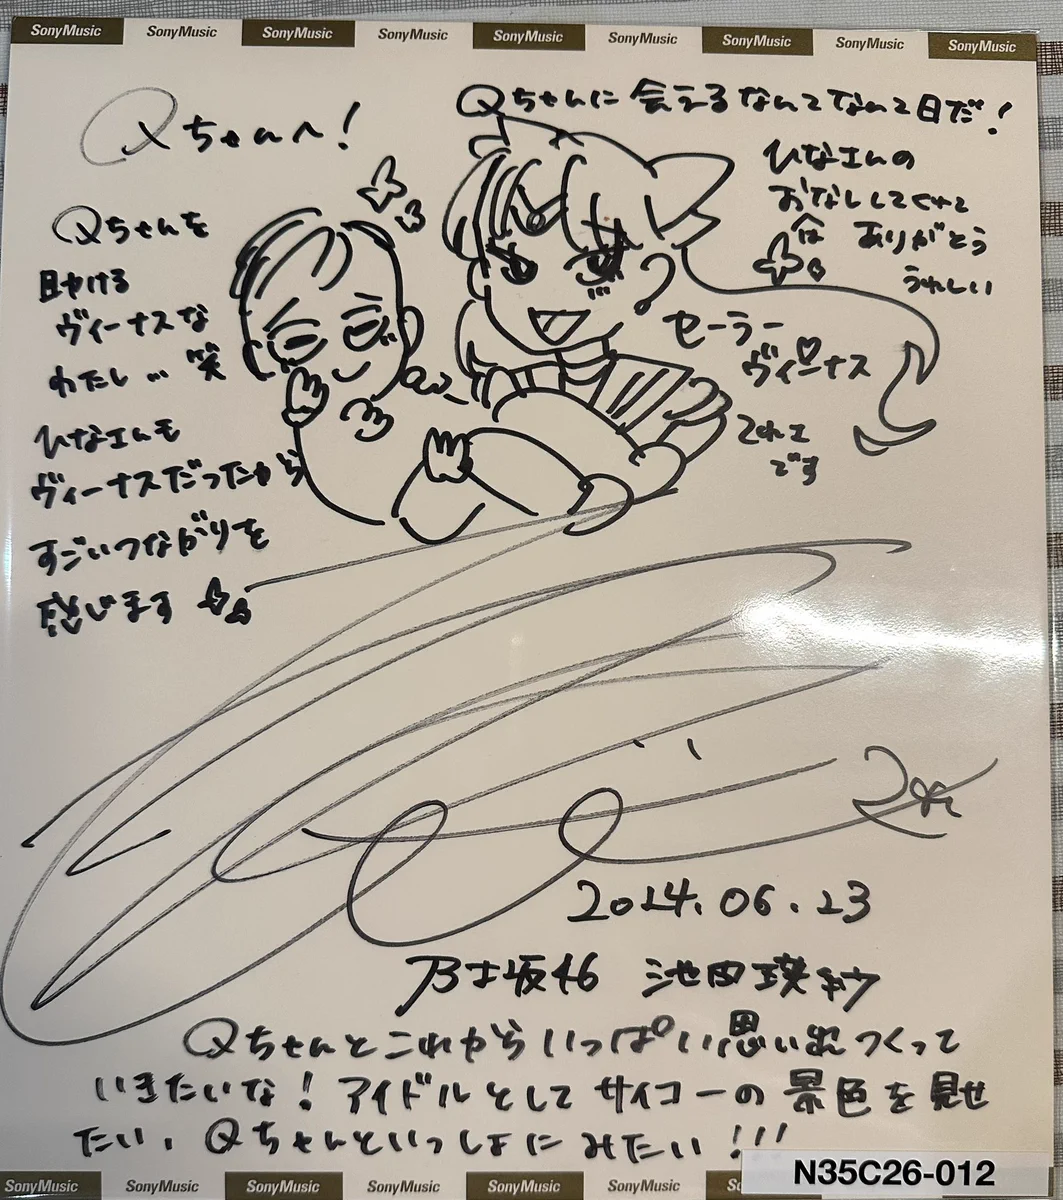 SonyMusic SonyMusic SonyMusic SonyMusic SonyMusic SonyMusic SonyMusic SonyMusic SonyMusic
Qちゃんへ!
Qちゃんに会えるなんてなんて日だ!
ひなエんの
おなししてくれて
は ありがとう
うれしい
Qちゃんを
目かける
ヴィーナスな
わたし…笑
ひなエんも
ヴィーナスだったから
すごいつながりを
感じます
セーラー
ヴィーナス
てれさ
です
2024.06.23
乃木坂46 池田瑛紗
Qちゃんとこれからいっぱい思い出つくって
いきたいな!アイドルとしてサイコーの景色を見せ
たい、Qちゃんといっしょにみたい!!!
N35C26-012
SonyMusic SonyMusic SonyMusic SonyMusic SonyMusic SonyMusic